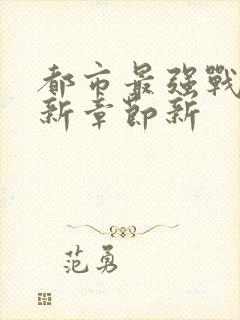 都市最强戰
新章節新
范勇